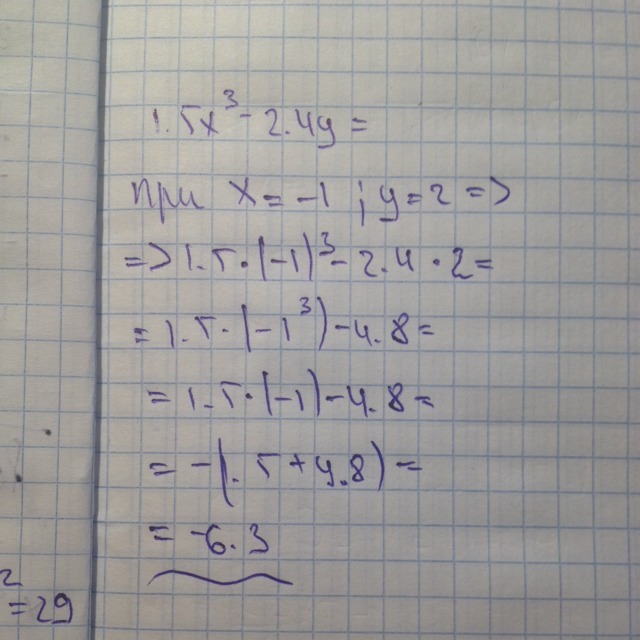 1.5x³ - 2.4y =
при x = -1 ; y = 2 =>
=> 1.5 · (-1)³ - 2.4 · 2 =
= 1.5 · (-1³) - 4.8 =
= 1.5 · (-1) - 4.8 =
= -(. 5 + 4.8) =
= -6.3
2
= 29